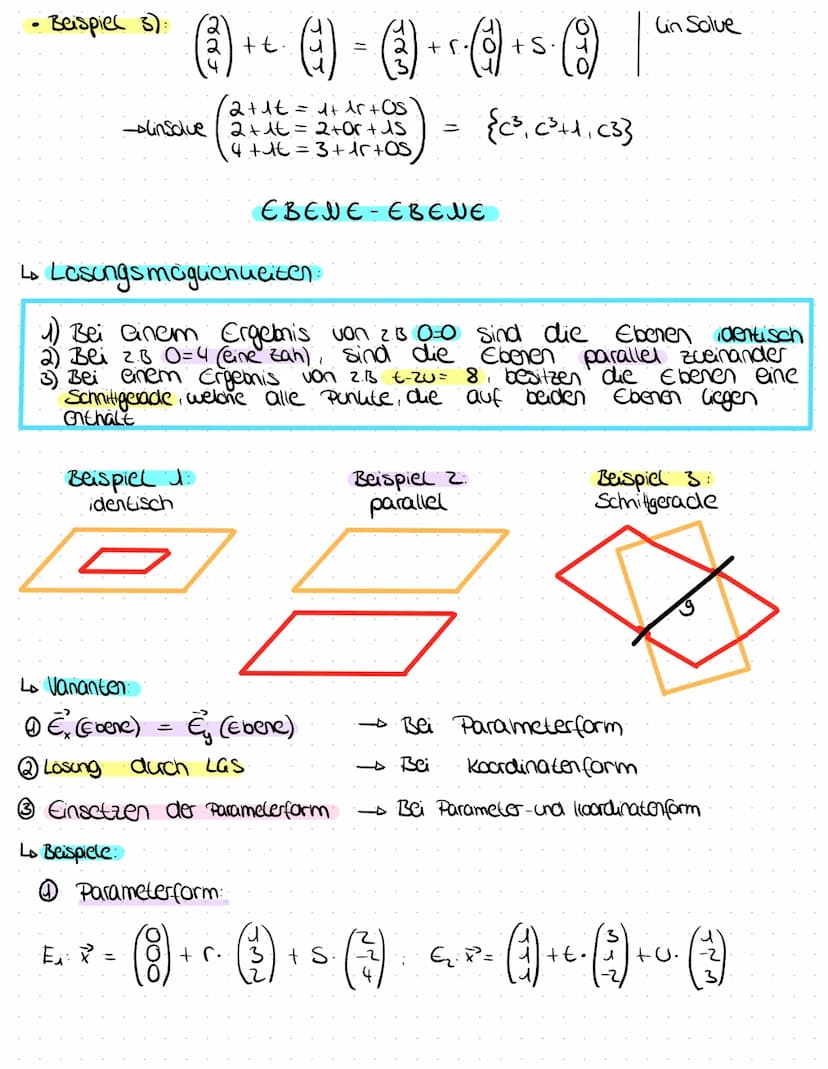 • Beispiel 3): (2 2 4) + t · (1 1 1) = (1 2 3) + r · (1 0 1) + s · (0 1 0) | linSolve
→ linSolve (2+1t = 1+1r+0s
2+1t = 2+0r+1s
4+1t = 3+1r+0s) = {c3, c3+1, c3}
EBENE - EBENE
↳ Lösungsmöglichkeiten:
1) Bei einem Ergebnis von z.B 0=0 sind die Ebenen identisch
2) Bei z.B 0=4 (eine Zahl), sind die Ebenen parallel zueinander
3) Bei einem Ergebnis von z.B t-2u= 8, besitzen die Ebenen eine
Schnittgerade, welche alle Punkte, die auf beiden Ebenen liegen
enthält
Beispiel 1: Beispiel 2: Beispiel 3:
identisch parallel Schnittgerade
g
↳ Varianten:
① E⃗x (Ebene) = E⃗y (Ebene) → Bei Parameterform
② Lösung durch LGS → Bei Koordinatenform
③ Einsetzen der Parameterform → Bei Parameter- und Koordinatenform
↳ Beispiele:
① Parameterform:
E₁: x⃗ = (0 0 0) + r · (1 3 2) + s · (2 -2 4) ; E₂: x⃗ = (1 1 1) + t · (3 1 -2) + u · (1 -2 3)